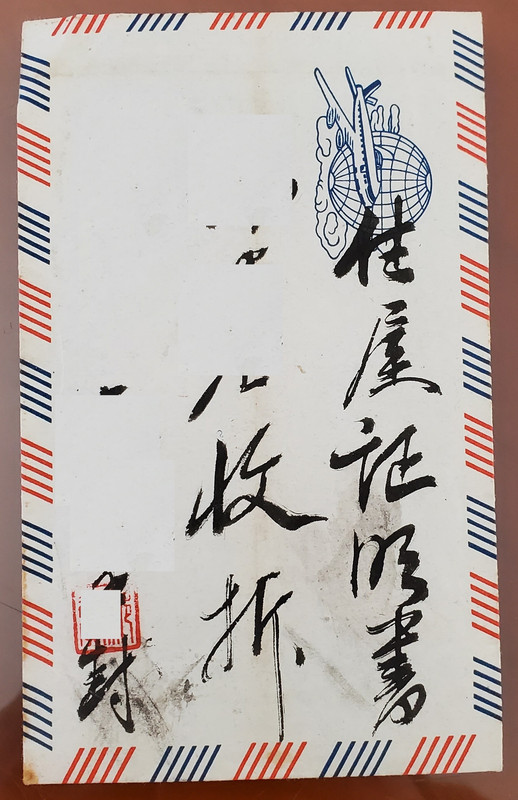 住屋証明書
收拆
封